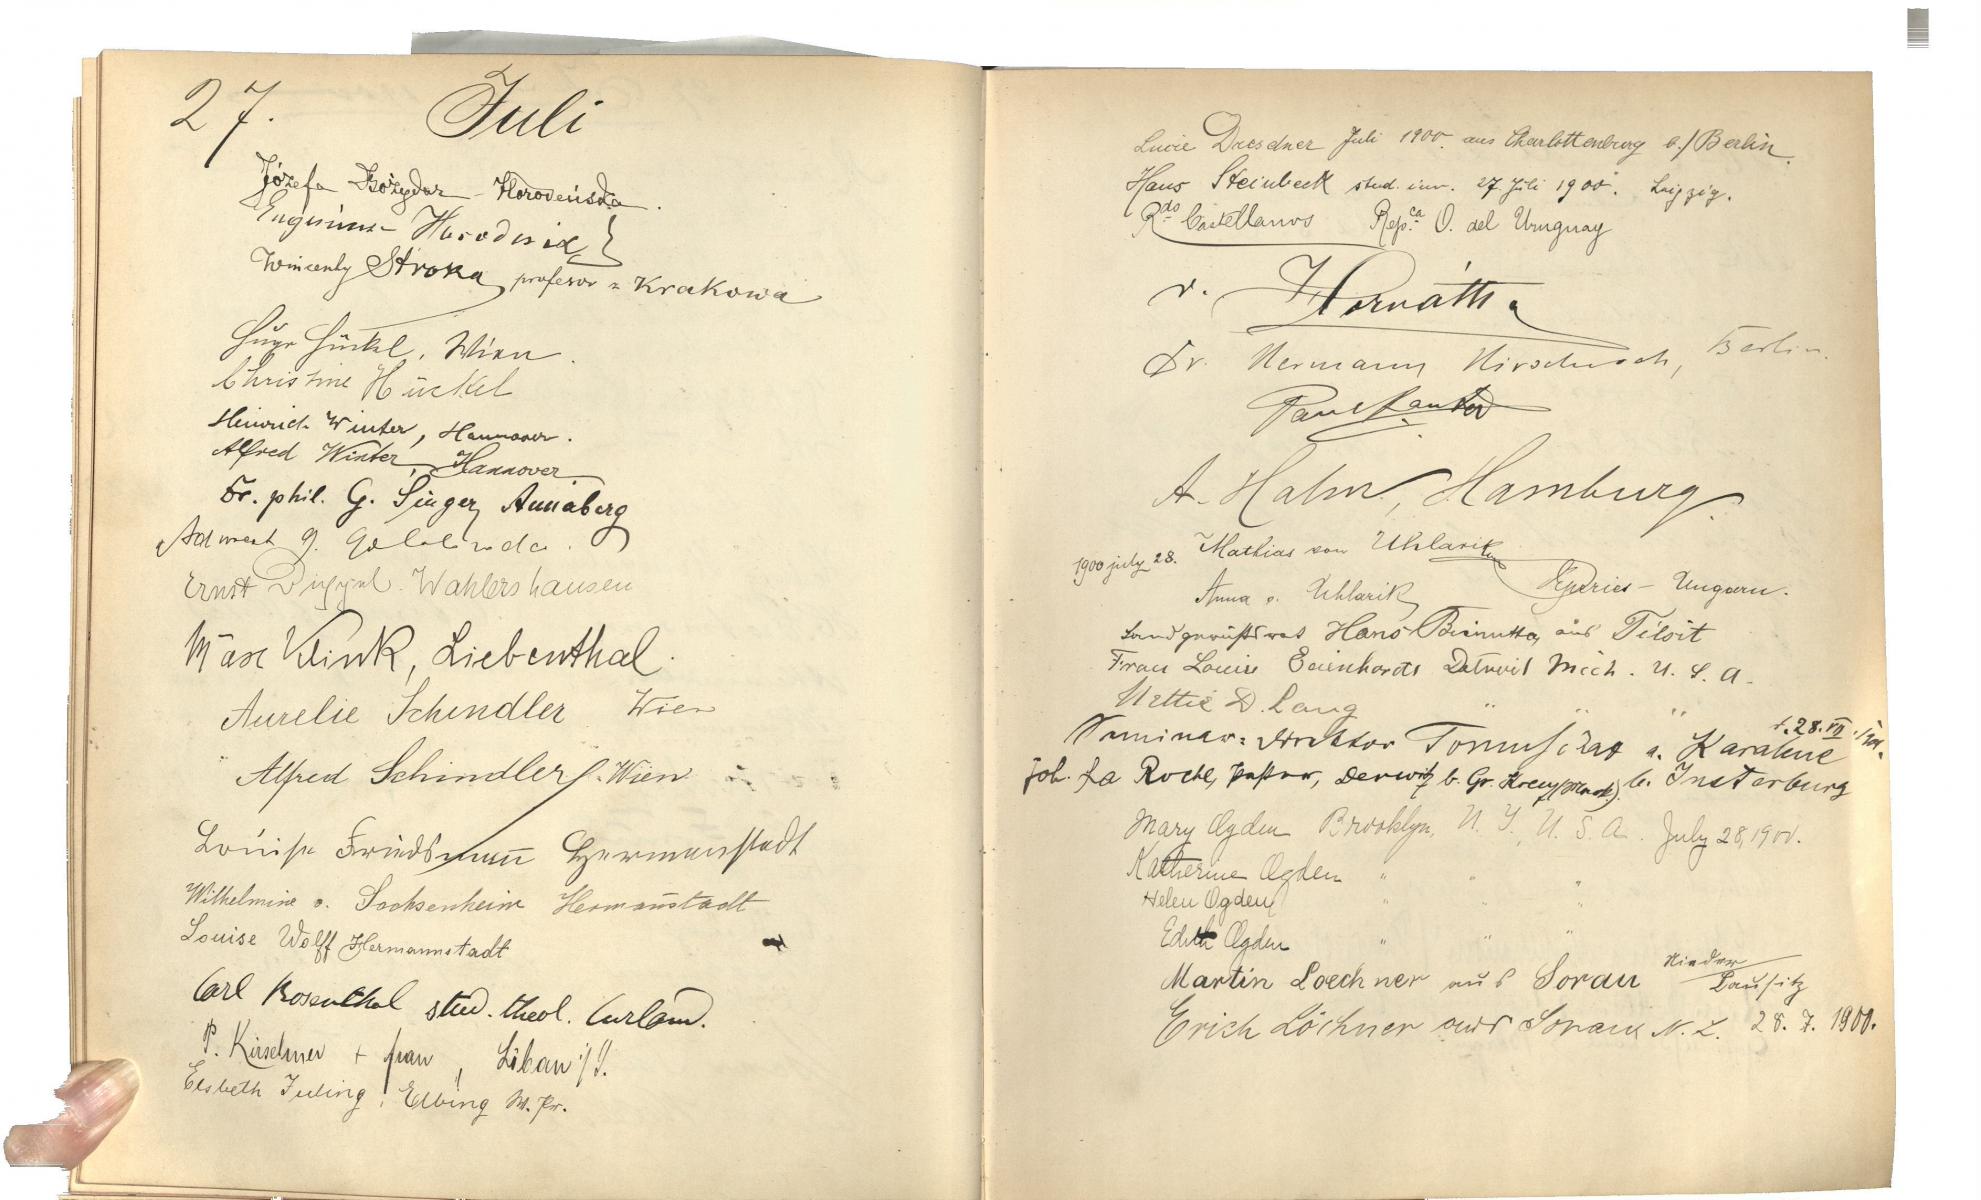 27. Juli
Józefa Bożydar-Horodeńska.
Eugeniusz Horodeński
Wincenty Stroka profesor z Krakowa
Hugo Hückel, Wien.
Christine Hückel
Heinrich Winter, Hannover.
Alfred Winter, Hannover
Dr. phil. G. Singer, Annaberg
G.
Ernst Wahlershausen
Max Klink, Liebenthal.
Aurelie Schindler Wien
Alfred Schindler. Wien
Louise Friedsmann Hermannstadt
Wilhelmine v. Sachsenheim Hermannstadt
Louise Wolff Hermannstadt
Carl Rosenthal stud. theol. Curland.
P. Kirschner + frau, Libau
Elsbeth Juling, Elbing W. Pr.
Lucie Dresdner Juli 1900. aus Charlottenburg b./Berlin.
Hans Steinbeck stud. iur. 27. Juli 1900. Leipzig.
Rdo Castellanos Repca O. del Uruguay
v. Horváth
Dr. Hermann Hirschbach, Berlin.
Paul Kantor
A. Halm, Hamburg.
1900 july 28. Mathias von Uhlarik
Anna v. Uhlarik Eperies - Ungarn.
Landgerichtsrat Hans aus Tilsit
Frau Louise Detroit Mich. U. S. A.
Nettie D. Lang " " "
Seminar-Direktor a. Karalene d. 28. VII.
Joh. La Roche, Pastor, b. Gr. Kreuz (Mark). b. Insterburg
Mary Ogden Brooklyn, N. Y., U. S. A. July 28, 1900.
Katherine Ogden " " "
Helen Ogden " " "
Edith Ogden " " "
Martin Loechner aus Sorau Nieder Lausitz
Erich Löchner aus Sorau N. L. 28. 7. 1900.